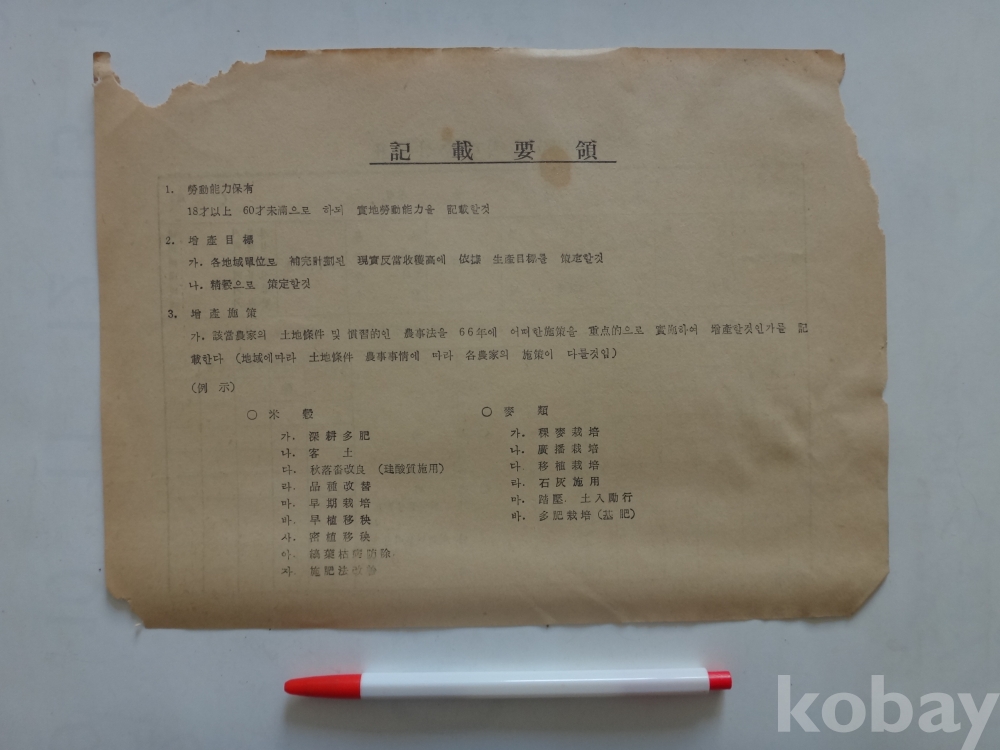 記載要領
1. 勞動能力保有
18才以上 60才未滿으로 하며 實地勞動能力을 記載할것
2. 增產目標
가. 各地域單位로 補完計劃된 現實反當收穫高에 依據 生產目標를 策定할것
나. 精穀으로 策定할것
3. 增產施策
가. 該當農家의 土地條件 및 慣習的인 農事法을 66年에 어떠한施策을 重点的으로 實施하여 增產할것인가를 記
載한다 (地域에따라 土地條件 農事事情에 따라 各農家의 施策이 다를것임)
(例示)
○ 米穀
가. 深耕多肥
나. 客土
다. 秋落畓改良 (珪酸質施用)
라. 品種改替
마. 早期栽培
바. 早植移秧
사. 密植移秧
아. 葉枯病防除
자. 施肥法改善
○ 麥類
가. 稞麥栽培
나. 廣播栽培
다. 移植栽培
라. 石灰施用
마. 踏壓 土入勵行
바. 多肥栽培(基肥)
kobay